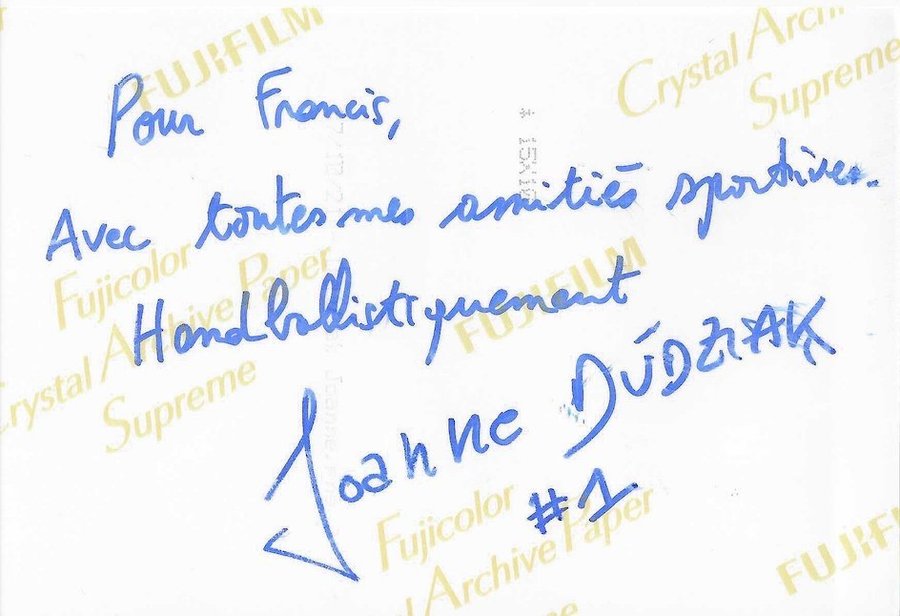 FUJIFILM
Crystal Archi
Supreme
Pour Francis,
Avec toutes mes amitiés sportives.
Fujicolor
Crystal Archive Paper
Supreme
FUJIFILM
Handballistiquement
Joanne DÚDZIAK
#1
Fujicolor
l Archive Paper
FUJIFILM